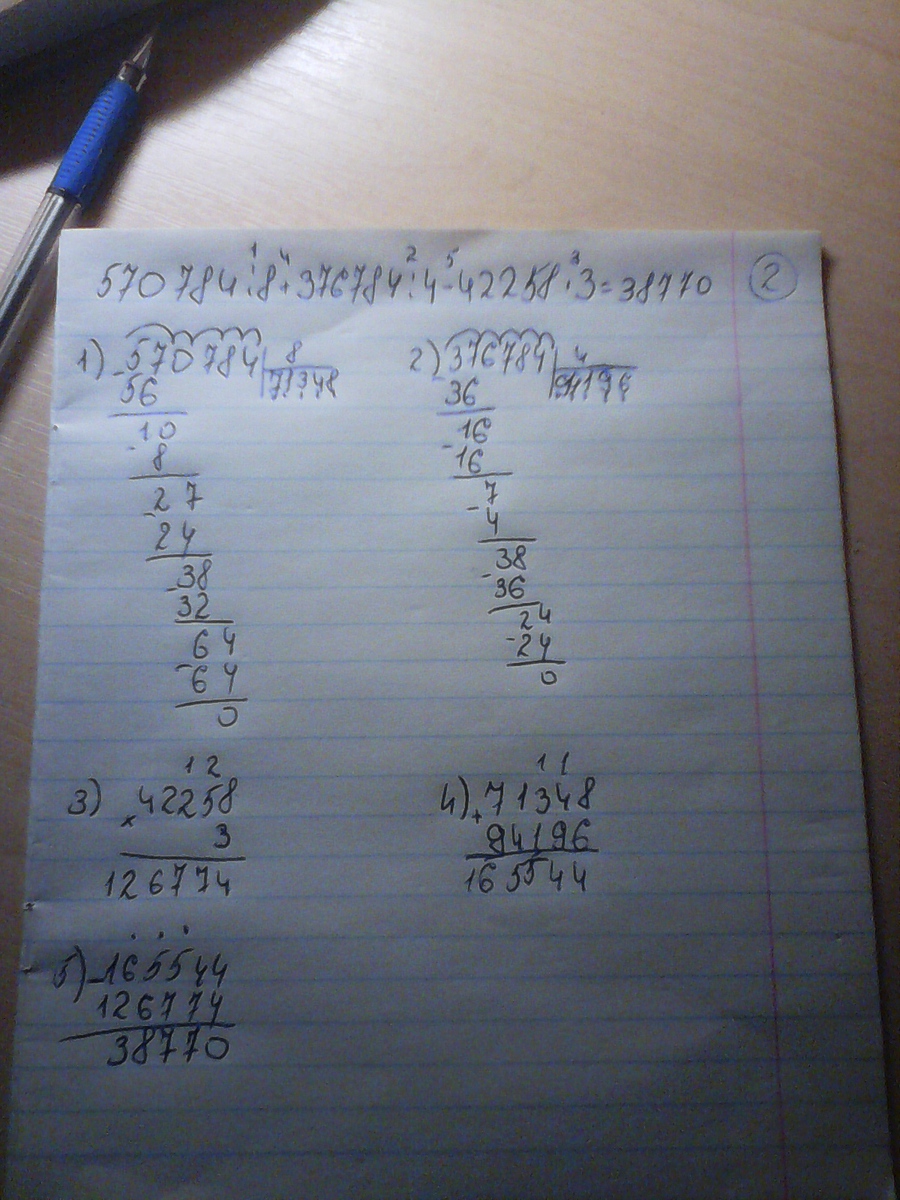 1 4 2 5 3
570784:8+376784:4-42258·3=38770 2
1) 570784 8
71348
- 56
10
- 8
27
- 24
38
- 32
64
- 64
0
2) 376784 4
94196
- 36
16
- 16
7
- 4
38
- 36
24
- 24
0
3) 12
× 42258
3
126774
4) 11
+ 71348
94196
165544
5) - 165544
126774
38770